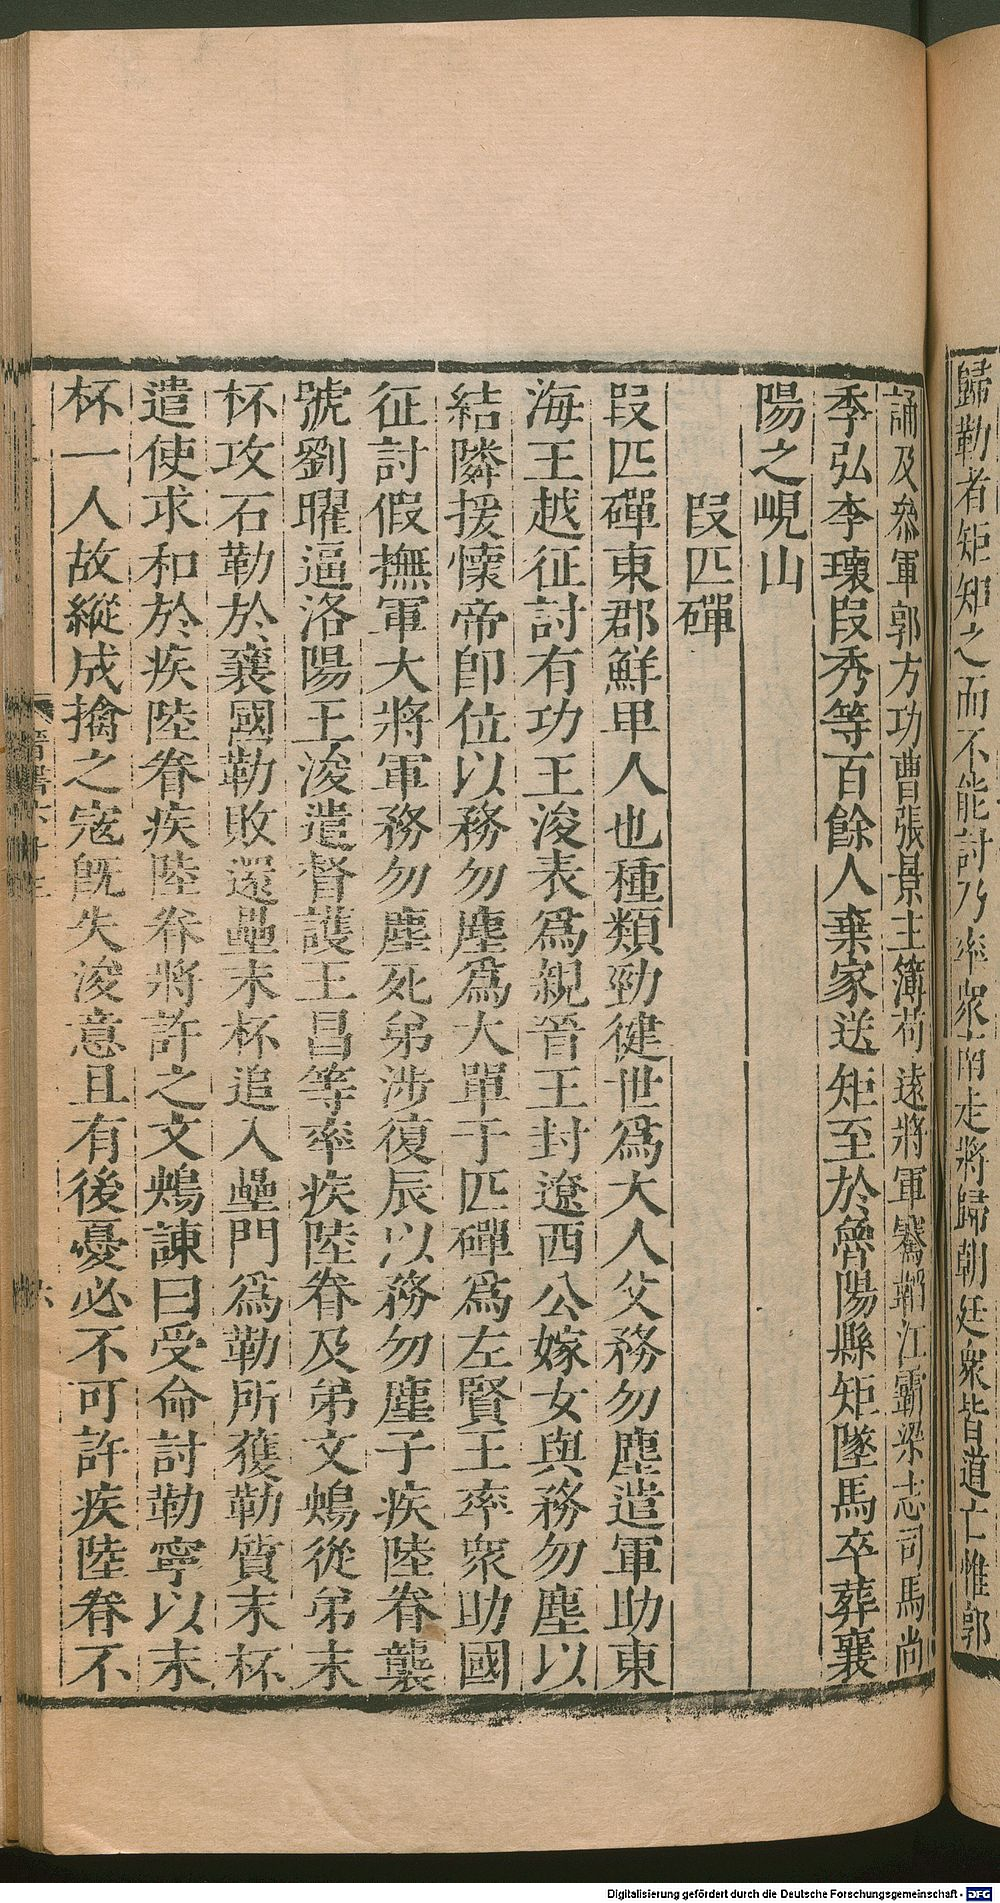 歸勒者矩知之而不能討乃率衆南走將歸朝廷衆皆道亡惟郭
誦及參軍郭方功曹張景主簿荀遠將軍騫韜江霸梁志司馬尚
季弘李瓌段秀等百餘人棄家送矩至於魯陽縣矩墜馬卒葬襄
陽之峴山
段匹磾
段匹磾東郡鮮卑人也種類勁健世爲大人父務勿塵遣軍助東
海王越征討有功王浚表爲親晉王封遼西公嫁女與務勿塵以
結隣援懷帝卽位以務勿塵爲大單于匹磾爲左賢王率衆助國
征討假撫軍大將軍務勿塵死弟涉復辰以務勿塵子疾陸眷襲
號劉曜逼洛陽王浚遣督護王昌等率疾陸眷及弟文鴦從弟末
杯攻石勒於襄國勒敗還壘末杯追入壘門爲勒所獲勒質末杯
遣使求和於疾陸眷疾陸眷將許之文鴦諫曰受命討勒寧以末
杯一人故縱成擒之寇旣失浚意且有後憂必不可許疾陸眷不
晉書六十三
六
Digitalisierung gefördert durch die Deutsche Forschungsgemeinschaft - DFG